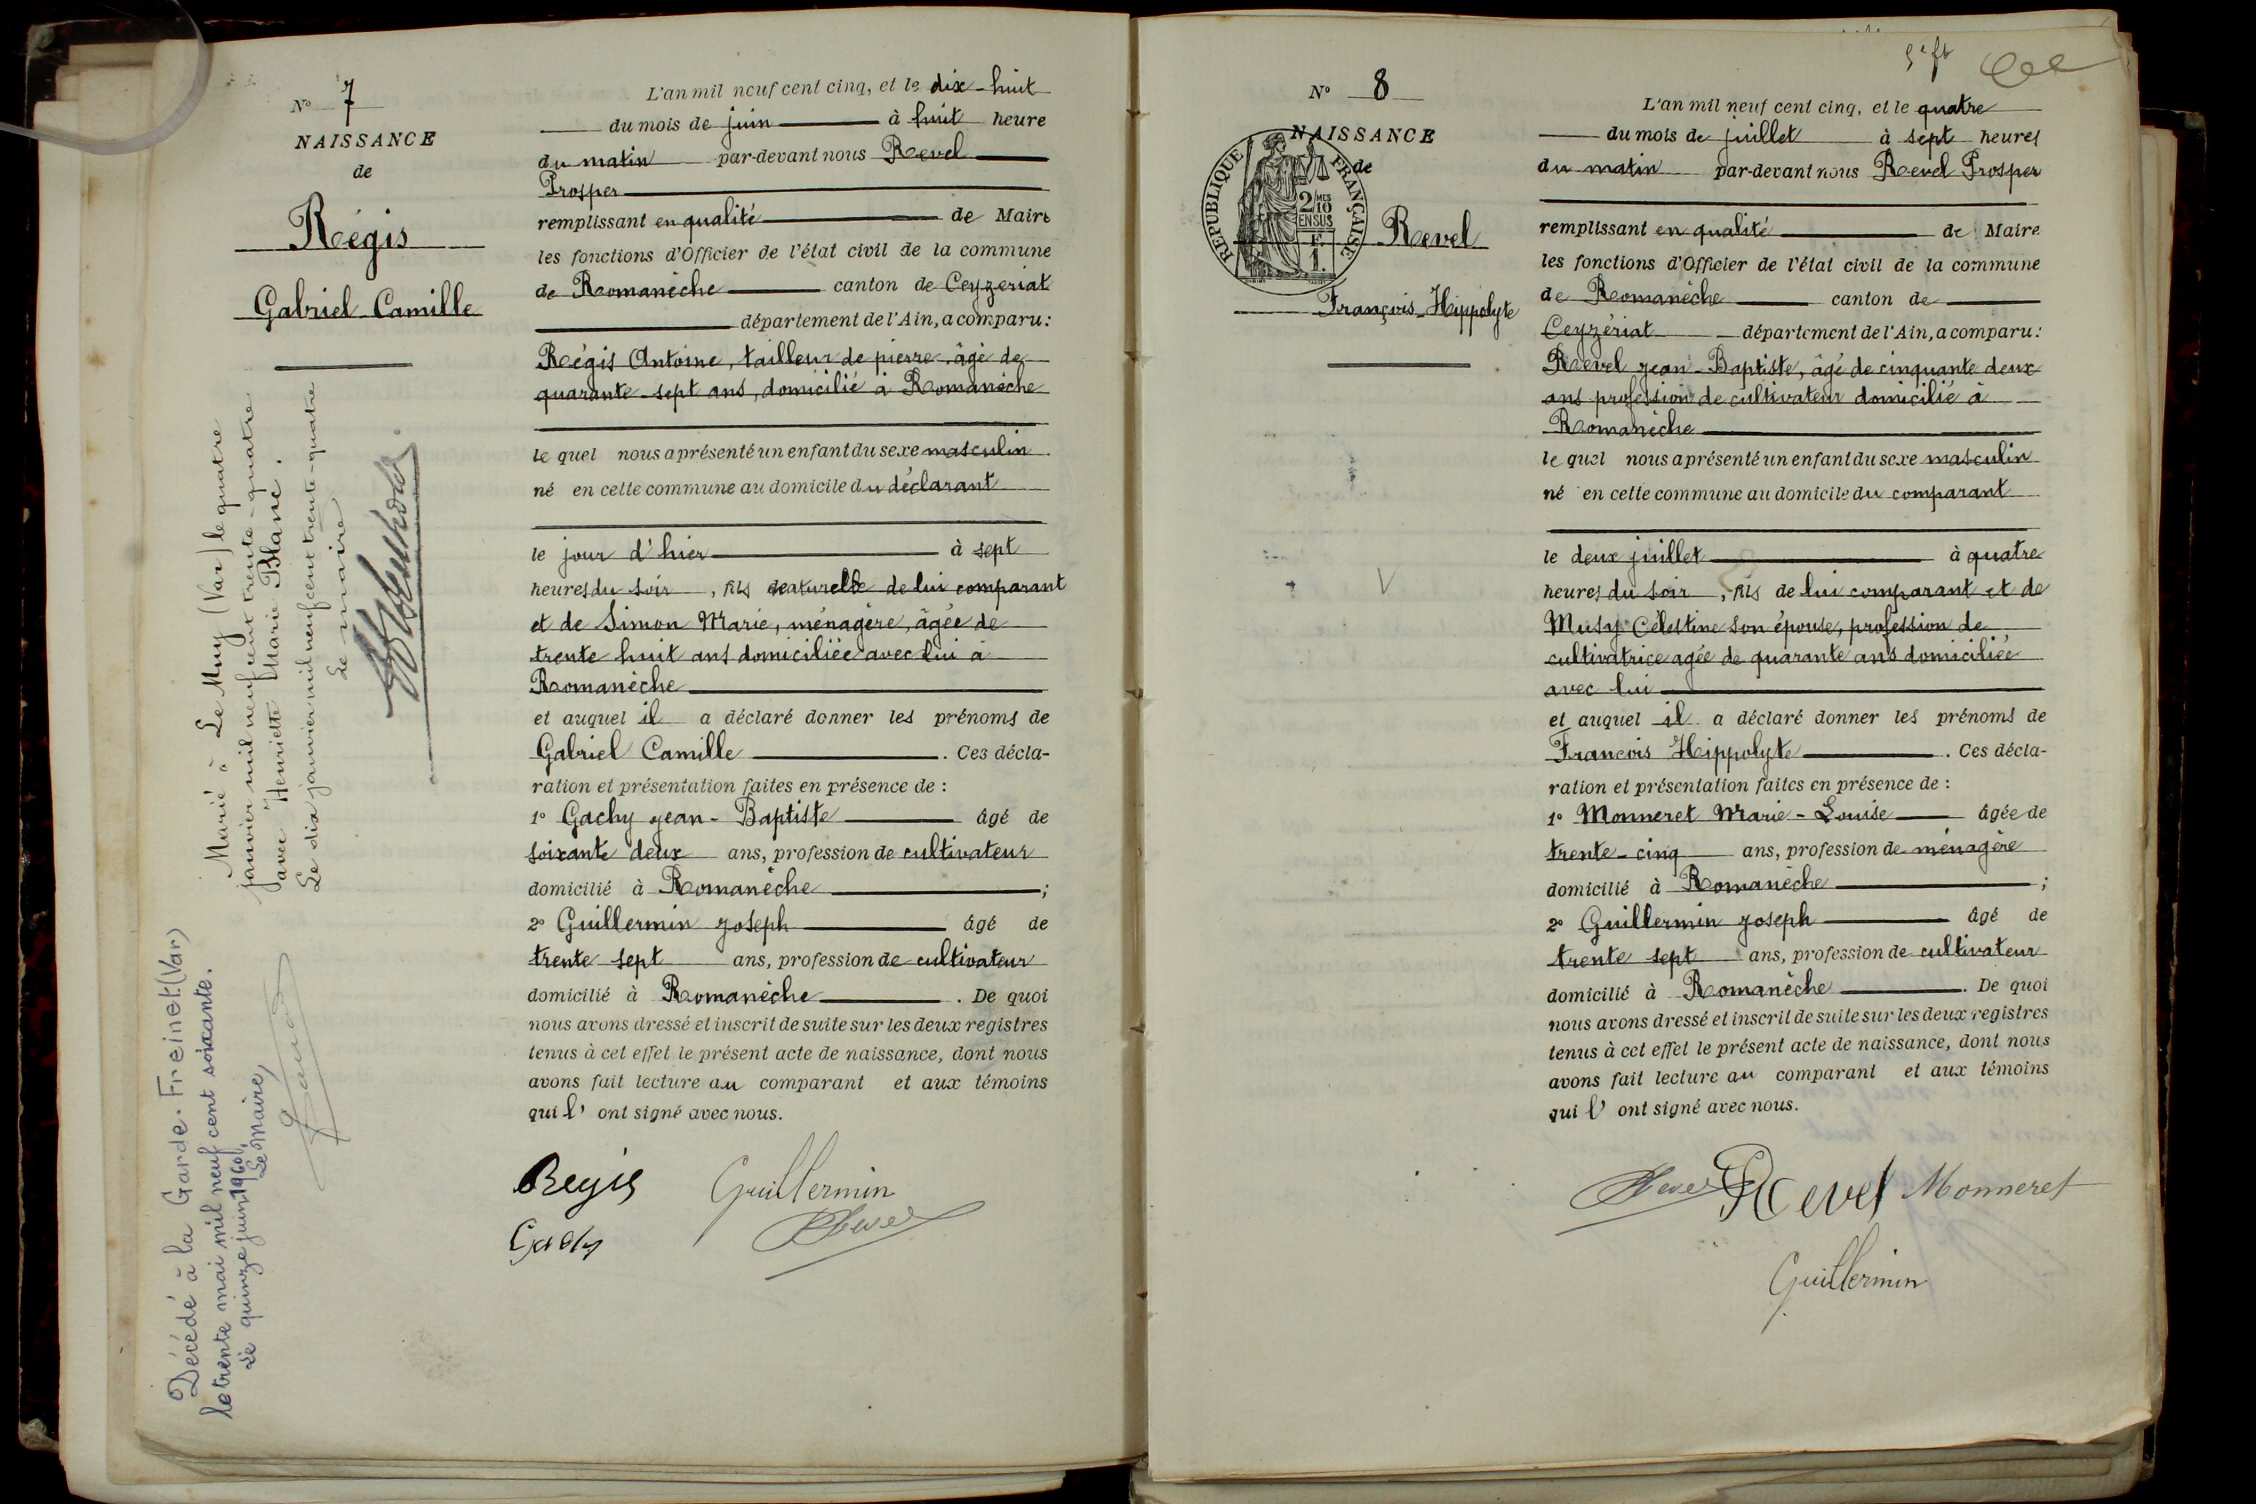 N° 7
NAISSANCE
de
Régis
Gabriel Camille
Marié à Le Muy (Var) le quatre
janvier mil neuf cent trente-quatre
avec Henriette Marie Blanc.
Le dix janvier mil neuf cent trente-quatre
Le maire
Décédé à la Garde.Freinet.(Var)
le trente mai mil neuf cent soixante.
Le quinze juin 1960,
Le Maire,
L'an mil neuf cent cinq, et le dix-huit
du mois de juin à huit heure
du matin par-devant nous Revel
Prosper
remplissant en qualité de Maire
les fonctions d'Officier de l'état civil de la commune
de Romanèche canton de Ceyzériat
département de l'Ain, a comparu:
Régis Antoine, tailleur de pierre âgé de
quarante-sept ans, domicilié à Romanèche
le quel nous a présenté un enfant du sexe masculin
né en cette commune au domicile du déclarant
le jour d'hier à sept
heures du soir, fils de lui comparant
et de Simon Marie, ménagère, âgée de
trente huit ans domiciliée avec lui à
Romanèche
et auquel il a déclaré donner les prénoms de
Gabriel Camille. Ces décla-
ration et présentation faites en présence de :
1° Gachy jean-Baptiste âgé de
soixante deux ans, profession de cultivateur
domicilié à Romanèche ;
2° Guillermin joseph âgé de
trente sept ans, profession de cultivateur
domicilié à Romanèche. De quoi
nous avons dressé et inscrit de suite sur les deux registres
tenus à cet effet le présent acte de naissance, dont nous
avons fait lecture au comparant et aux témoins
qui l' ont signé avec nous.
Regis Guillermin
Gachy Revel
N° 8
NAISSANCE
de
REPUBLIQUE FRANÇAISE
2/10MES
EN SUS
1F.
Revel
François-Hippolyte
L'an mil neuf cent cinq, et le quatre
du mois de juillet à sept heures
du matin par-devant nous Revel Prosper
remplissant en qualité de Maire
les fonctions d'Officier de l'état civil de la commune
de Romanèche canton de
Ceyzériat département de l'Ain, a comparu:
Revel jean-Baptiste, âgé de cinquante deux
ans profession de cultivateur domicilié à
Romanèche
le quel nous a présenté un enfant du sexe masculin
né en cette commune au domicile du comparant
le deux juillet à quatre
heures du soir, fils de lui comparant et de
Musy Célestine son épouse, profession de
cultivatrice agée de quarante ans domiciliée
avec lui
et auquel il a déclaré donner les prénoms de
Francois Hippolyte. Ces décla-
ration et présentation faites en présence de :
1° Monneret Marie-Louise âgée de
trente-cinq ans, profession de ménagère
domicilié à Romanèche ;
2° Guillermin joseph âgé de
trente sept ans, profession de cultivateur
domicilié à Romanèche. De quoi
nous avons dressé et inscrit de suite sur les deux registres
tenus à cet effet le présent acte de naissance, dont nous
avons fait lecture au comparant et aux témoins
qui l' ont signé avec nous.
Revel Revel Monneret
Guillermin